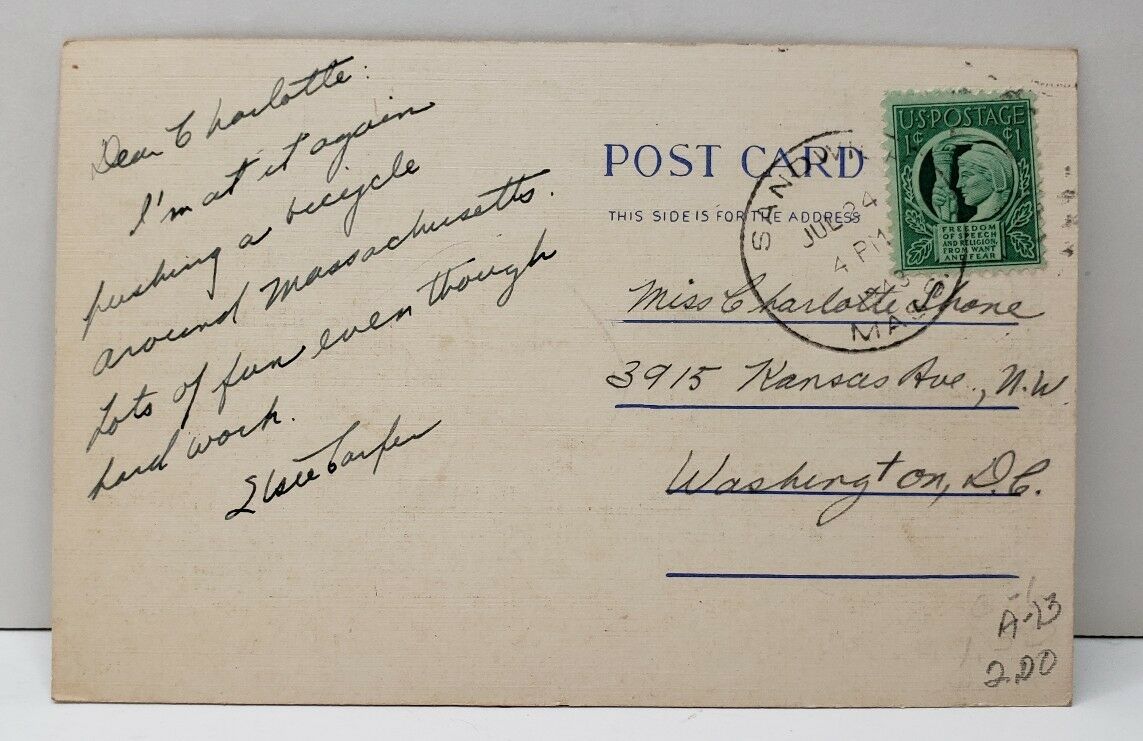 Dear Charlotte:
I'm at it again
pushing a bicycle
around Massachusetts.
Lots of fun even though
hard work.
Elsie Carper
POST CARD
THIS SIDE IS FOR THE ADDRESS
U.S. POSTAGE
1¢ 1¢
FREEDOM
OF SPEECH
AND RELIGION,
FROM WANT
AND FEAR
JUL 24
4 PM
MASS
Miss Charlotte
3915 Kansas Ave., N.W.
Washington, D.C.
A-23
2.00